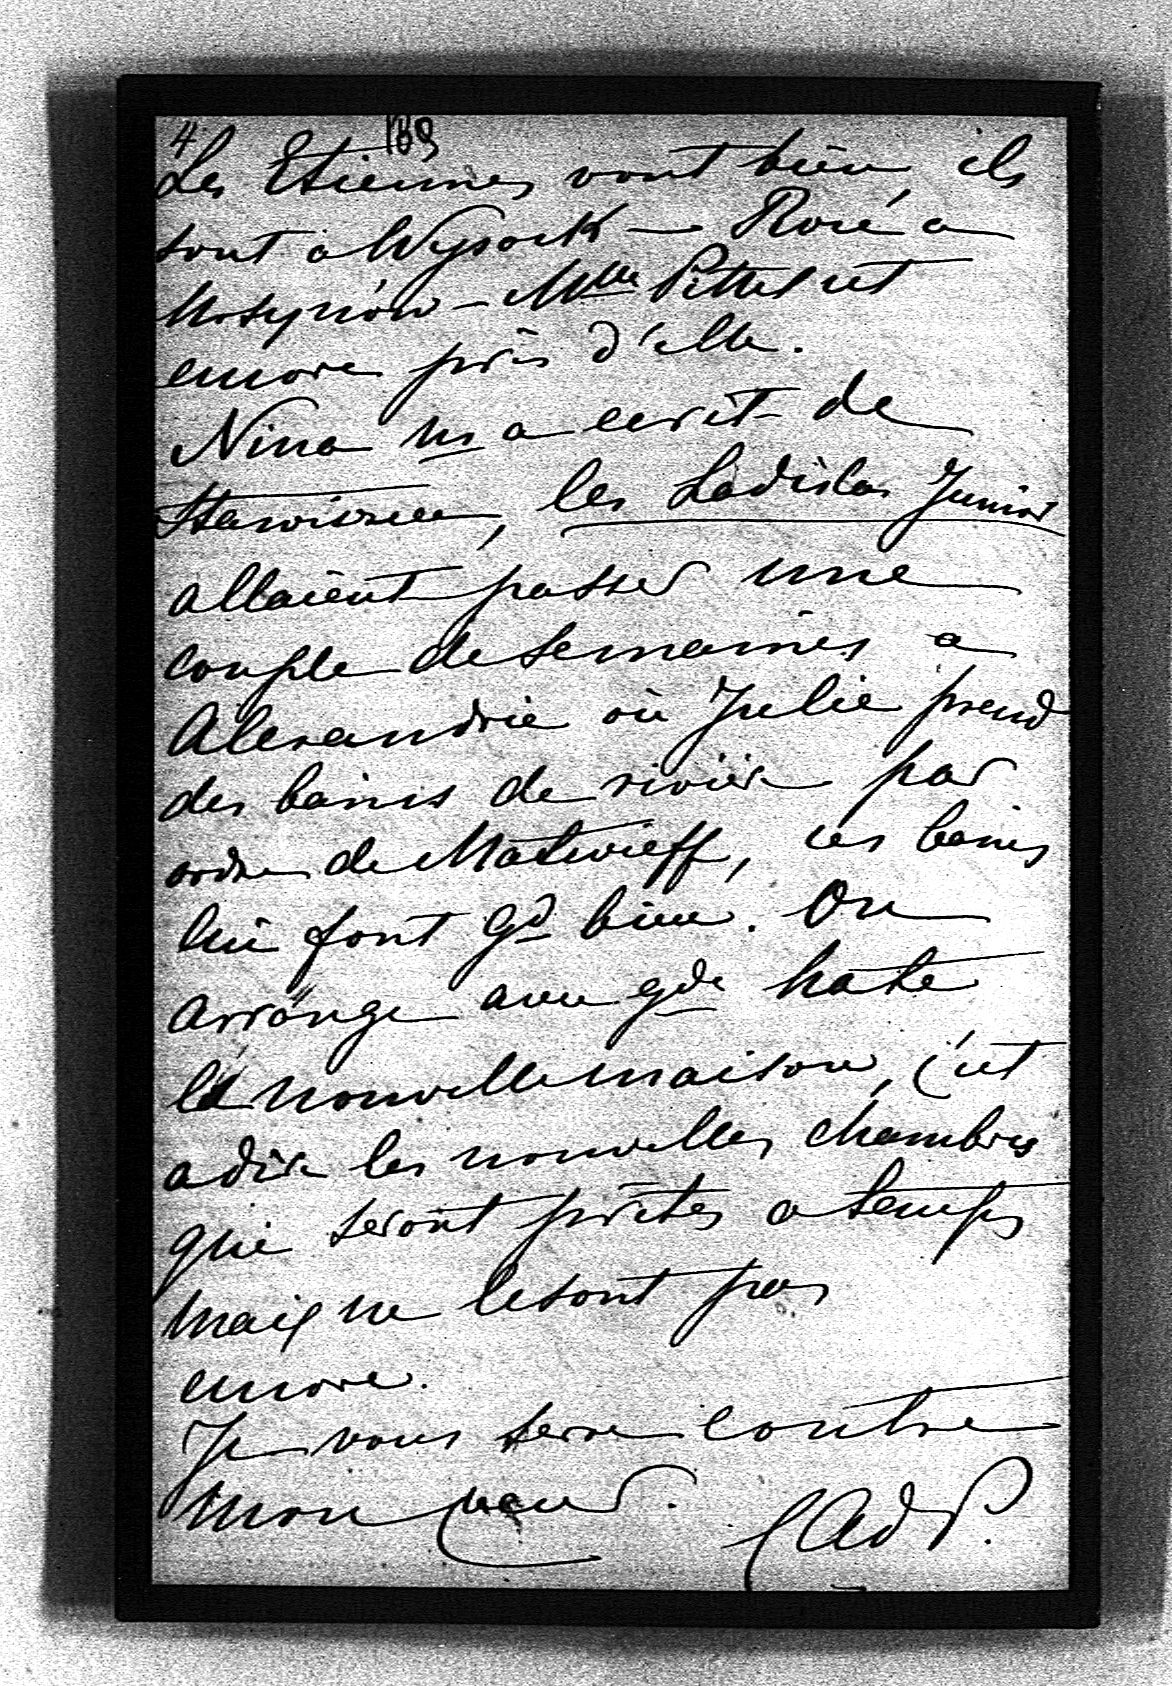 4 169
Les Etiennes vont bien, ils
sont a Wysock — Rosé a
Mosynów — Mlle Pittel est
encore près d'elle.
Nina m'a ecrit de
Stawiszcze, les Ladislas Junior
allaient passer une
couple de semaines a
Alexandrie où Julie prend
des bains de rivière par
ordre de Matwieff, ces bains
lui font gd bien. On
arrange avec gde hate
la nouvelle maison, c'est
a dire les nouvelles chambres
qui seront prêtes a temps
mais ne le sont pas
encore.
Je vous serre contre
mon cœur. Ad P.